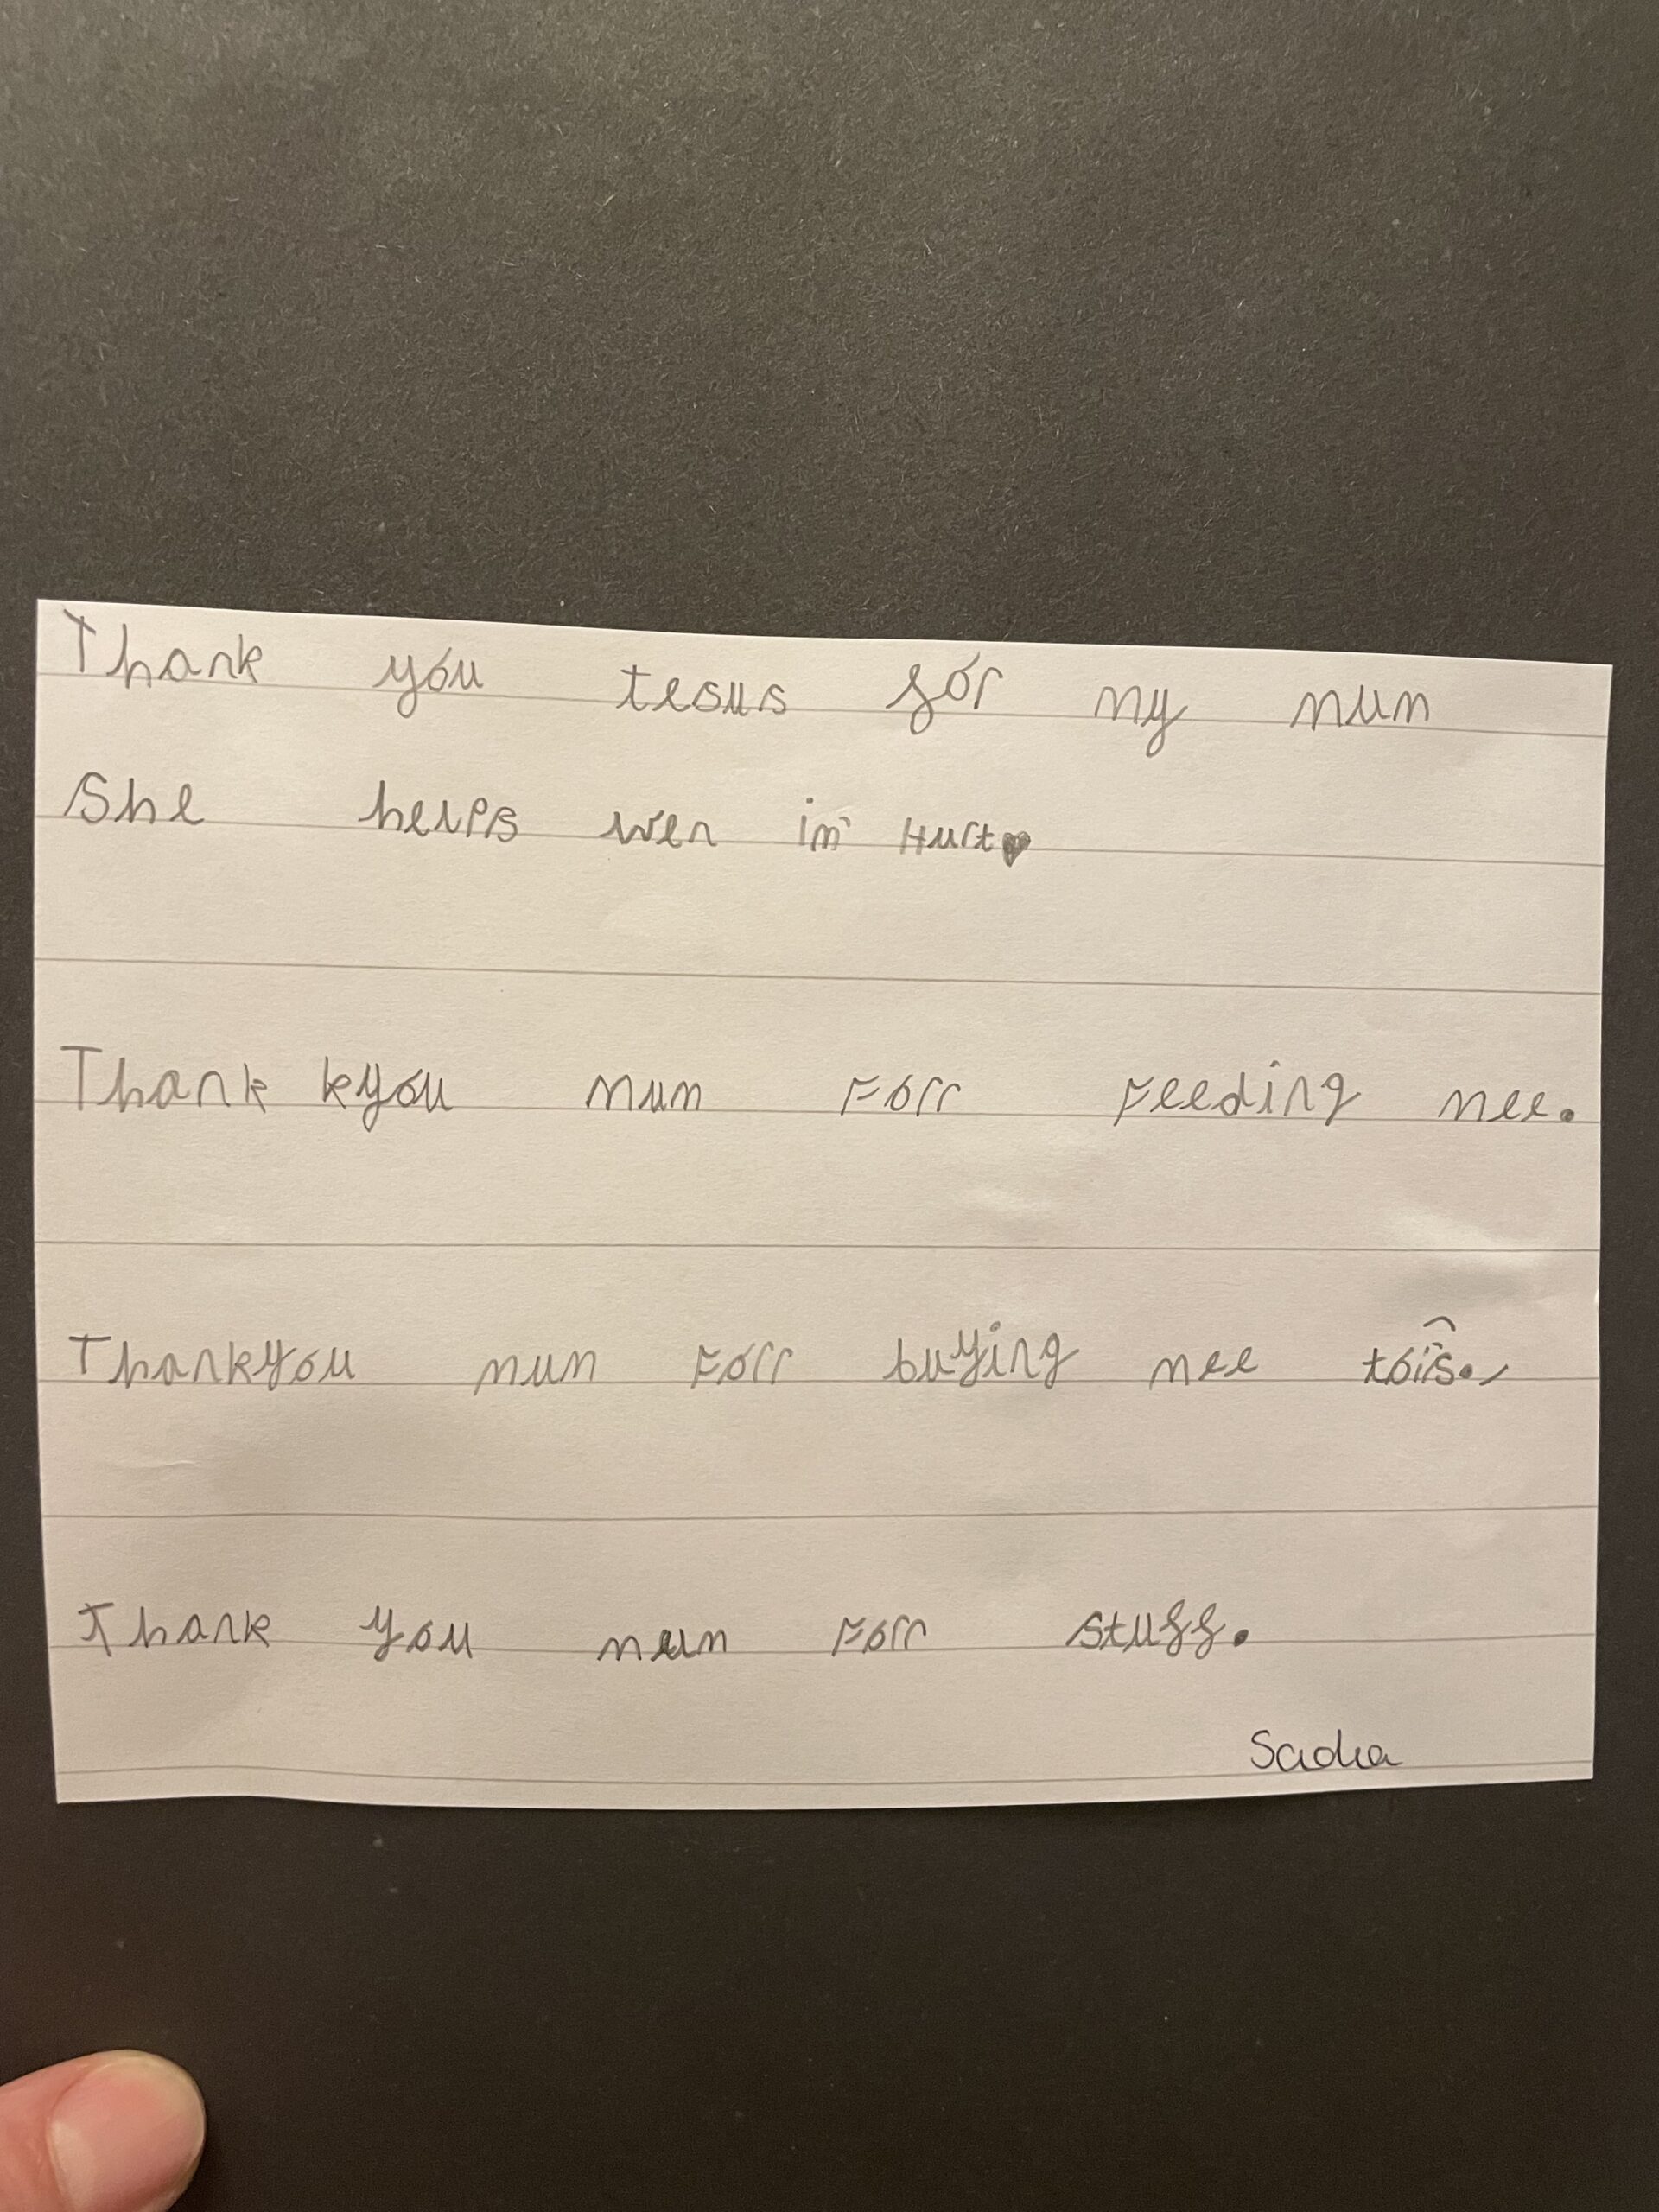 Thank you tesus for my mum
She helps wen im Hurt♥
Thank kyou mum Forr Feeding mee.
Thankyou mum Forr buying mee toiis.
Thank you mum Forr stuff.
Sadia